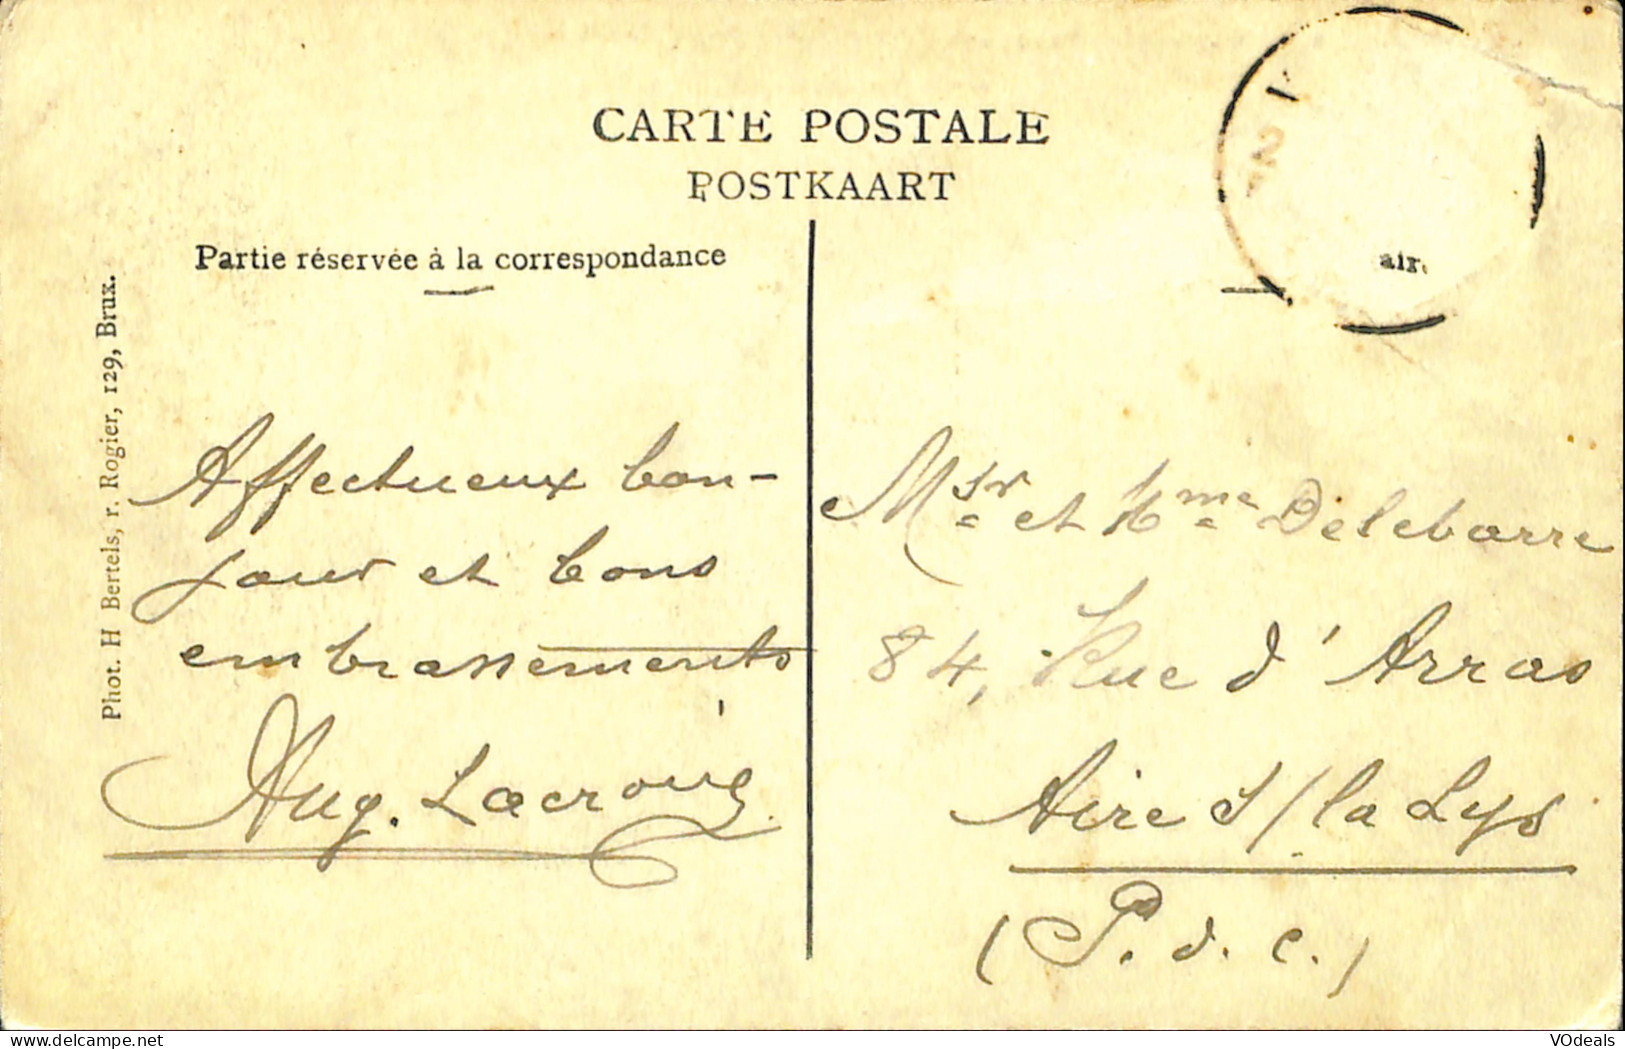 CARTE POSTALE
POSTKAART
Partie réservée à la correspondance
Phot. H Bertels, r. Rogier, 129, Brux.
Affectueux bon-
jour et bons
embrassements
Aug. Lacroix
Msr et Mme Delebarre
84, Rue d'Arras
Aire s/la Lys
(P. d. C.)
VOdeals